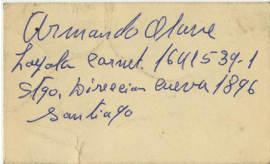 Armando Olave
Loyola carnet. 1641539-1
Stgo, Direccion cueva 1896
Santiago